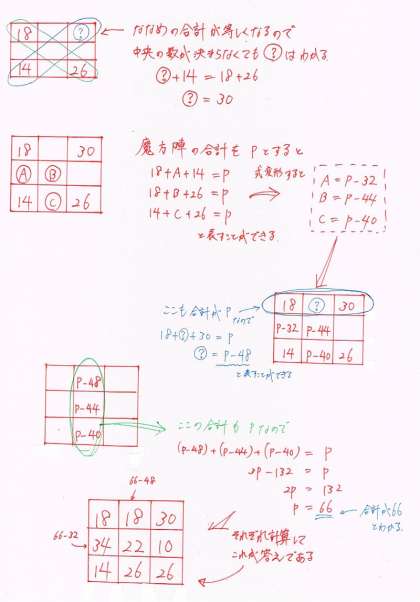 18 ?
14 26
ななめの合計が等しくなるので
中央の数が決まらなくても?はわかる
?+14 = 18+26
? = 30
18 30
A B
14 C 26
魔方陣の合計をPとすると
18+A+14 = P
18+B+26 = P
14+C+26 = P
と表すことができる.
式変形すると
A = P-32
B = P-44
C = P-40
ここも合計がPなので
18+?+30 = P
? = P-48
と表すことができる
18 ? 30
P-32 P-44
14 P-40 26
P-48
P-44
P-40
ここの合計もPなので
(P-48)+(P-44)+(P-40) = P
3P-132 = P
2P = 132
P = 66
合計が66
とわかる.
66-48
66-32
18 18 30
34 22 10
14 26 26
それぞれ計算して
これが答えである